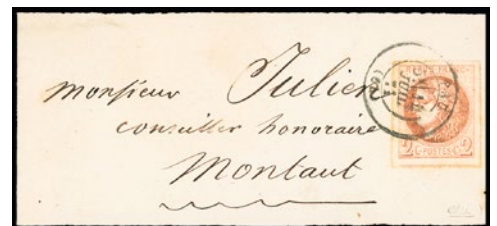 Monsieur Julien
conseiller honoraire
Montaut
PAU
2 C. POSTES C. 2